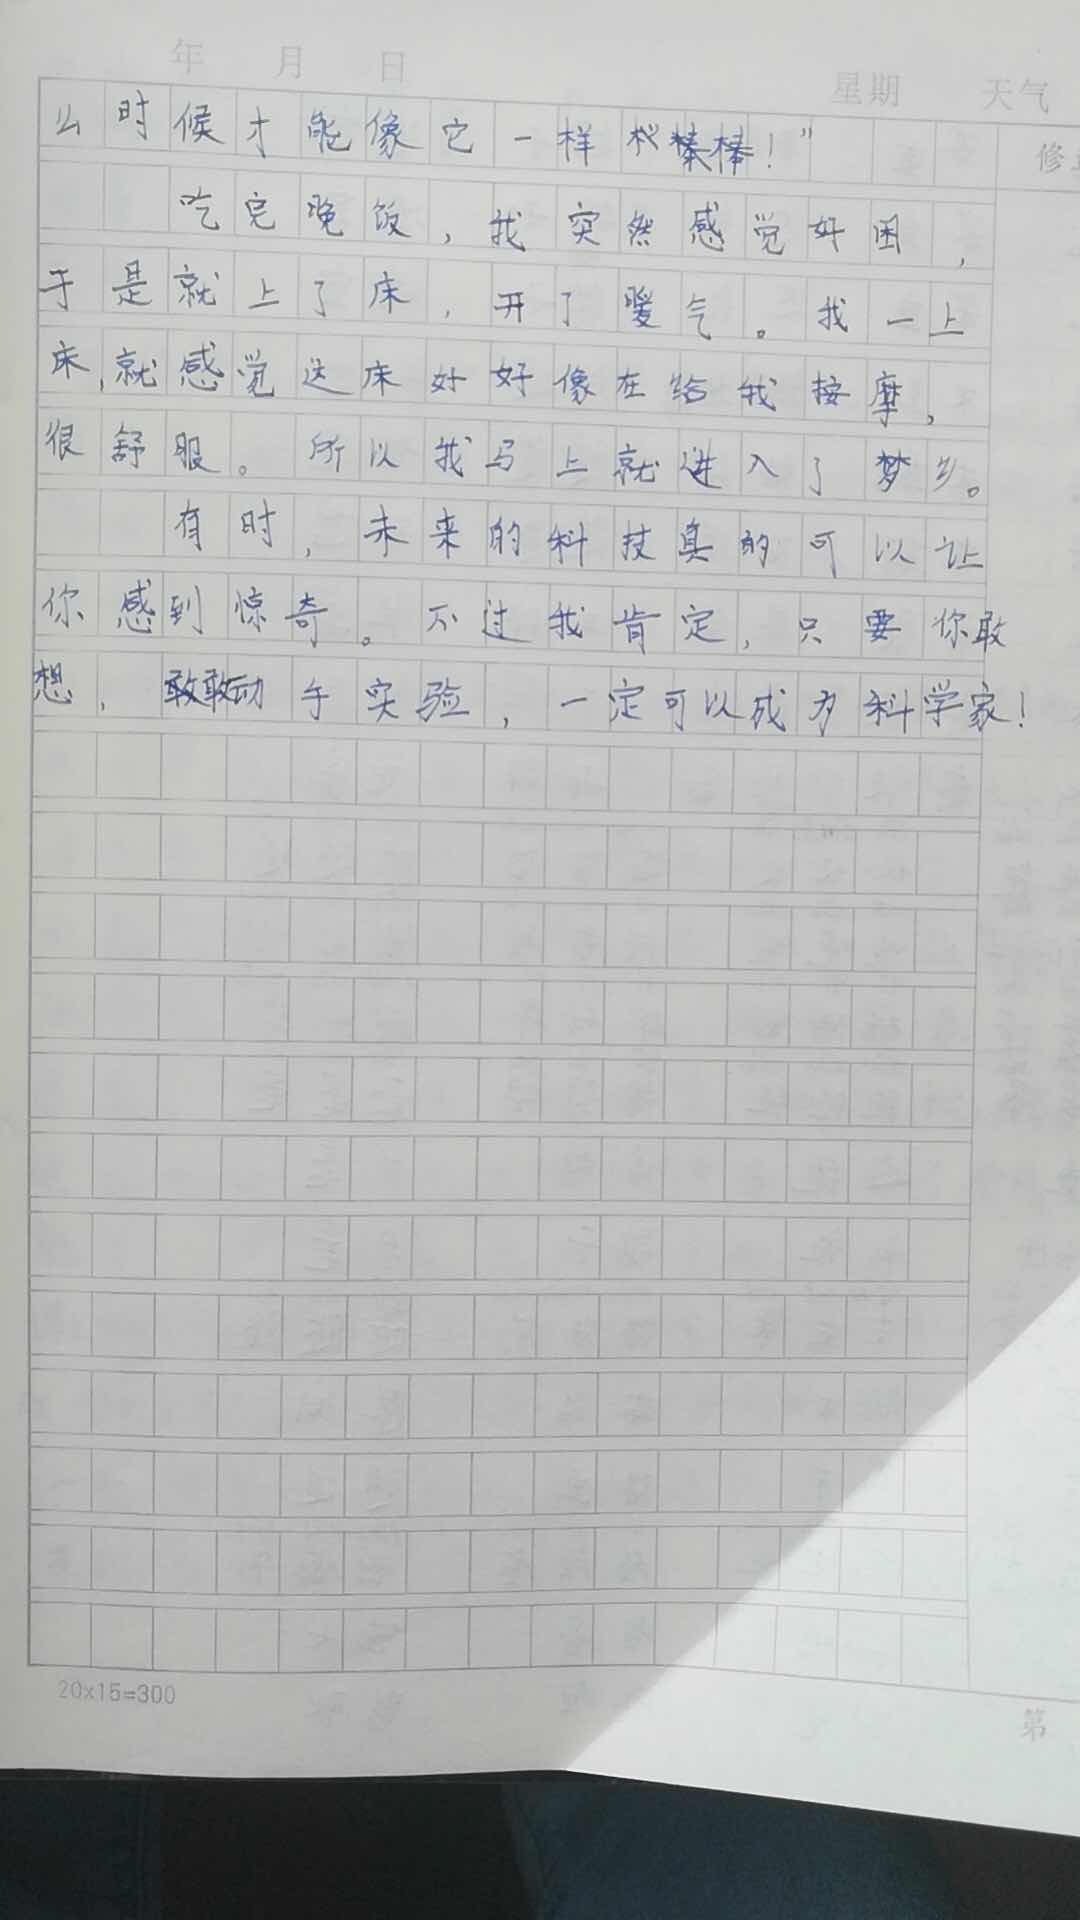 年 月 日
星期 天气
么时候才能像它一样棒棒!”
修
吃完晚饭,我突然感觉好困,
于是就上了床,开了暖气。我一上
床,就感觉这床好好像在给我按摩,
很舒服。所以我马上就进入了梦乡。
有时,未来的科技真的可以让
你感到惊奇。不过我肯定,只要你敢
想,敢敢动手实验,一定可以成为科学家!
20×15=300
第